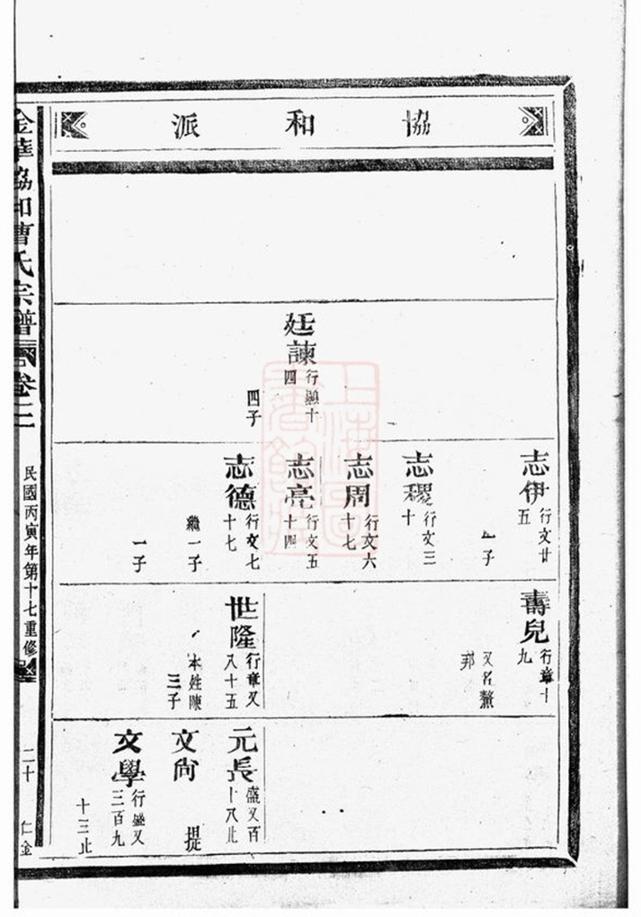 協和派
廷諫
行十
四
四子
志伊
行文廿
五
一子
志稷
行文三
十
志周
行文六
十七
志亮
行文五
十四
志德
行文七
十七
繼一子
一子
壽兒
行章十
九
又名鰲
邦
世隆
行章又
八十五
本姓陳
三子
元長
盛又百
十八止
文尙
提
文學
行盛又
三百九
十三止
金華協和曹氏宗譜 卷二 民國丙寅年第十七重修 二十 仁金
上海圖書館藏